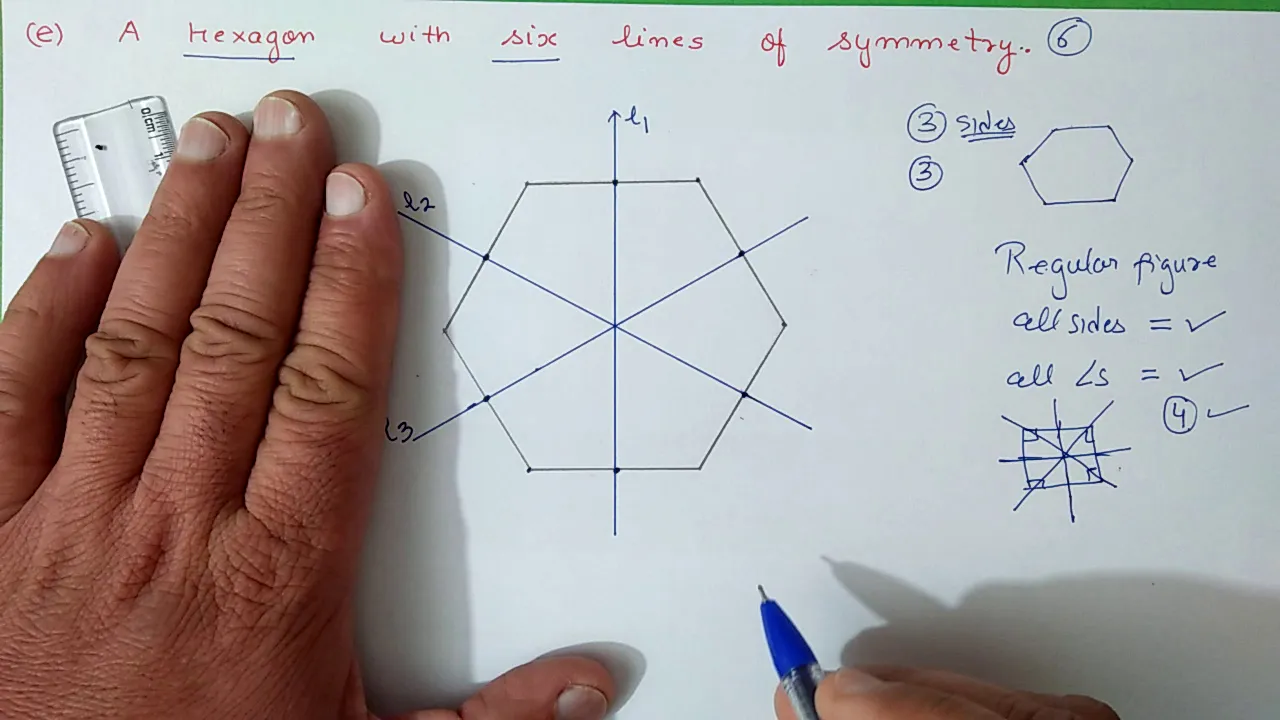 (e) A Hexagon with six lines of symmetry.. 6
0 cm 1
l1
l2
l3
3 sides
3
Regular figure
all sides = ✓
all ∠s = ✓
4 ✓